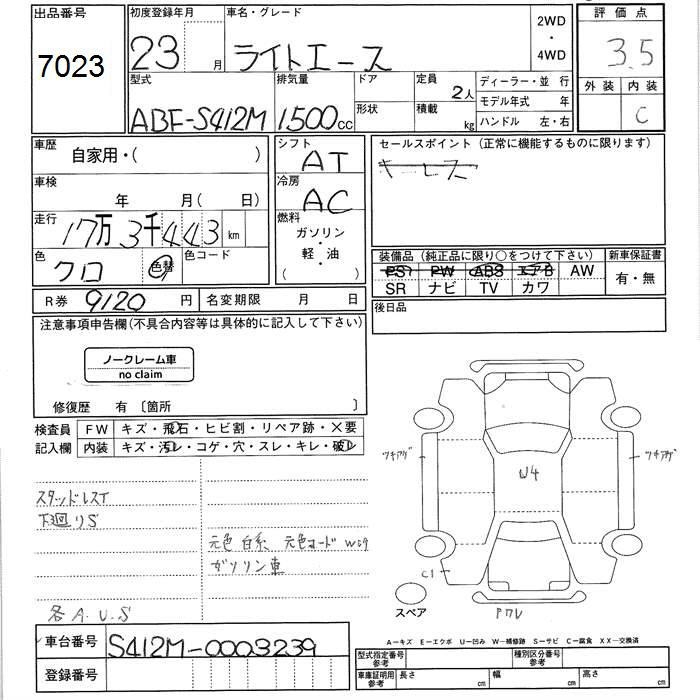 出品番号
7023
初度登録年月
23 月
車名・グレード
ライトエース
2WD
・
4WD
評価点
3.5
外装 内装
C
型式
ABF-S412M
排気量
1500cc
ドア
形状
定員
2人
積載
kg
ディーラー・並 行
モデル年式 年
ハンドル 左・右
車歴
自家用・( )
車検
年 月( 日)
走行
17万3千443km
色
クロ
色替
色コード
シフト
AT
冷房
AC
燃料
ガソリン
・
軽・油
( )
セールスポイント (正常に機能するものに限ります)
キーレス
装備品 (純正品に限り○をつけて下さい)
PS PW ABS エアB AW
SR ナビ TV カワ
新車保証書
有・無
R券 9120円
名変期限 月 日
後日品
注意事項申告欄(不具合内容等は具体的に記入して下さい)
ノークレーム車
no claim
修復歴 有〔箇所 〕
検査員
記入欄
FW キズ・飛石・ヒビ割・リペア跡・×要
内装 キズ・汚レ・コゲ・穴・スレ・キレ・破レ
スタッドレスT
下廻りS
元色 白系 元色コード W09
ガソリン車
各A.U.S
ツキアゲ
W4
ツキアゲ
C1
スペア
Pワレ
車台番号 S412M-0003239
登録番号
A－キズ E－エクボ U－凹み W－補修跡 S－サビ C－腐食 XX－交換済
型式指定番号
参考
種別区分番号
参考
車庫証明用
参考
長さ cm
幅 cm
高さ cm